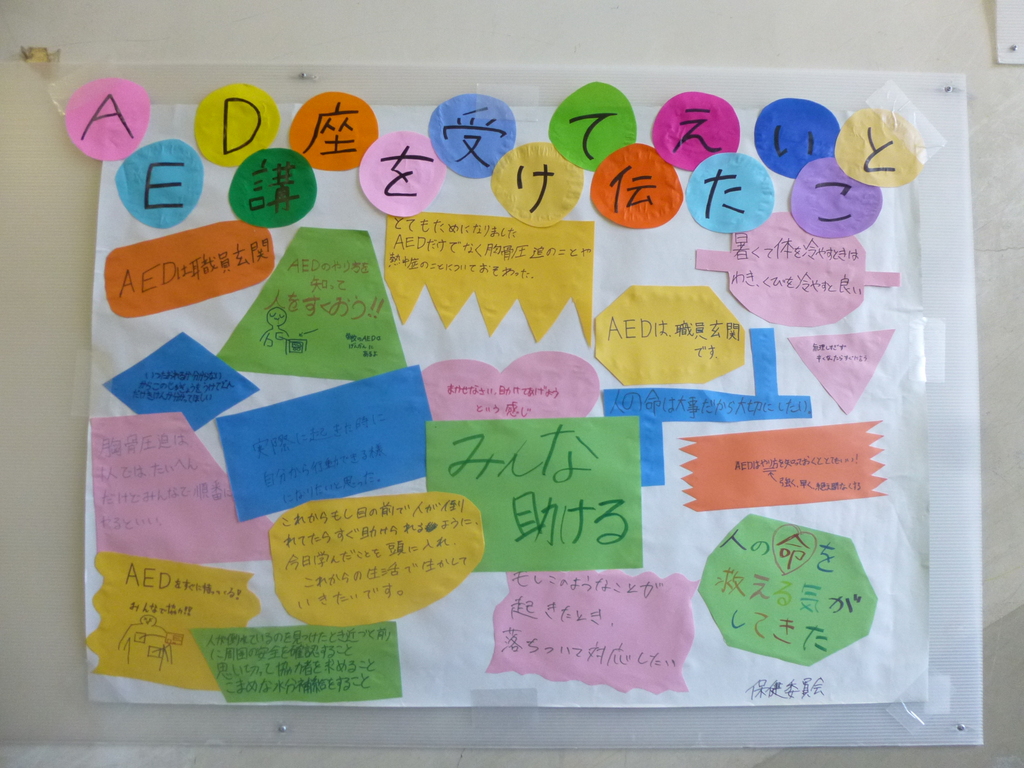 AED講座を受けて伝えたいこと
AEDは職員玄関
AEDのやり方を
知って
人をすくおう!!
学校のAEDは
げんかんに
あるよ
とてもためになりました
AEDだけでなく胸骨圧迫のことや
熱中症のことについておそわった。
暑くて体を冷やすときは
わき、くびを冷やすと良い
AEDは、職員玄関
です。
無理しだず
いつたおれるか分からない
まかせなさい、助けてあげよう
という感じ
人の命は大事だから大切にしたい。
胸骨圧迫は
1人ではたいへん
だけどみんなで順番に
やるといい。
実際に起きた時に
自分から行動できる様
になりたいと思った。
みんな
助ける
AEDはやり方を知っておくととてもいい!
強く、早く、絶え間なくする
これからもし目の前で人が倒
れてたらすぐ助けられるように、
今日学んだことを頭に入れ、
これからの生活で生かして
いきたいです。
人の命を
救える気が
してきた
AED
みんなで協力!!
もしこのようなことが
起きたとき、
落ちついて対応したい
人が倒れているのを見つけたとき近づく前
に周囲の安全を確認すること
思いきっし協力者を求めること
こまめな水分補給をすること
保健委員会